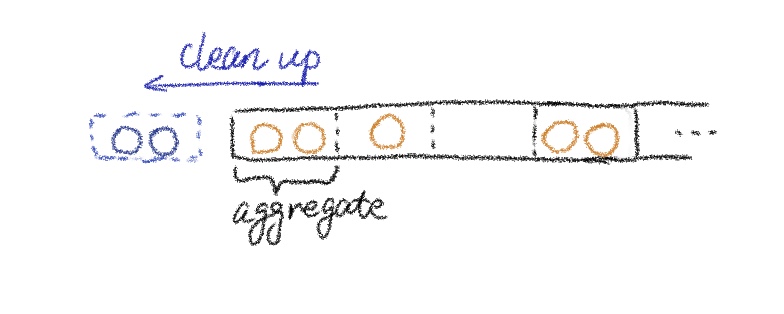 clean up
aggregate